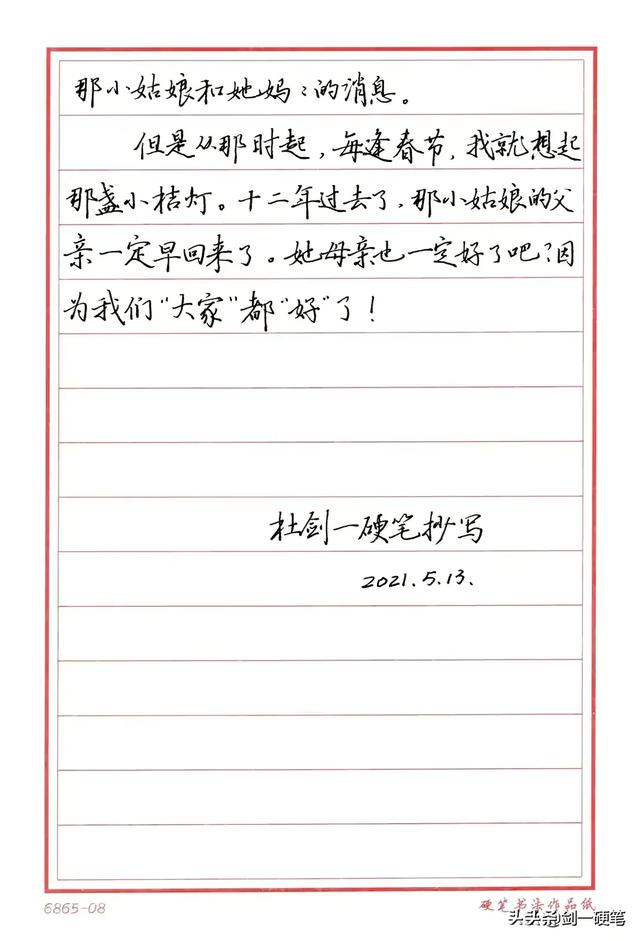 那小姑娘和她妈：的消息。
但是从那时起，每逢春节，我就想起
那盏小桔灯。十二年过去了，那小姑娘的父
亲一定早回来了。她母亲也一定好了吧？因
为我们“大家”都“好”了！
杜剑一硬笔抄写
2021.5.13.
6865-08
硬笔书法作品纸
头条@剑一硬笔